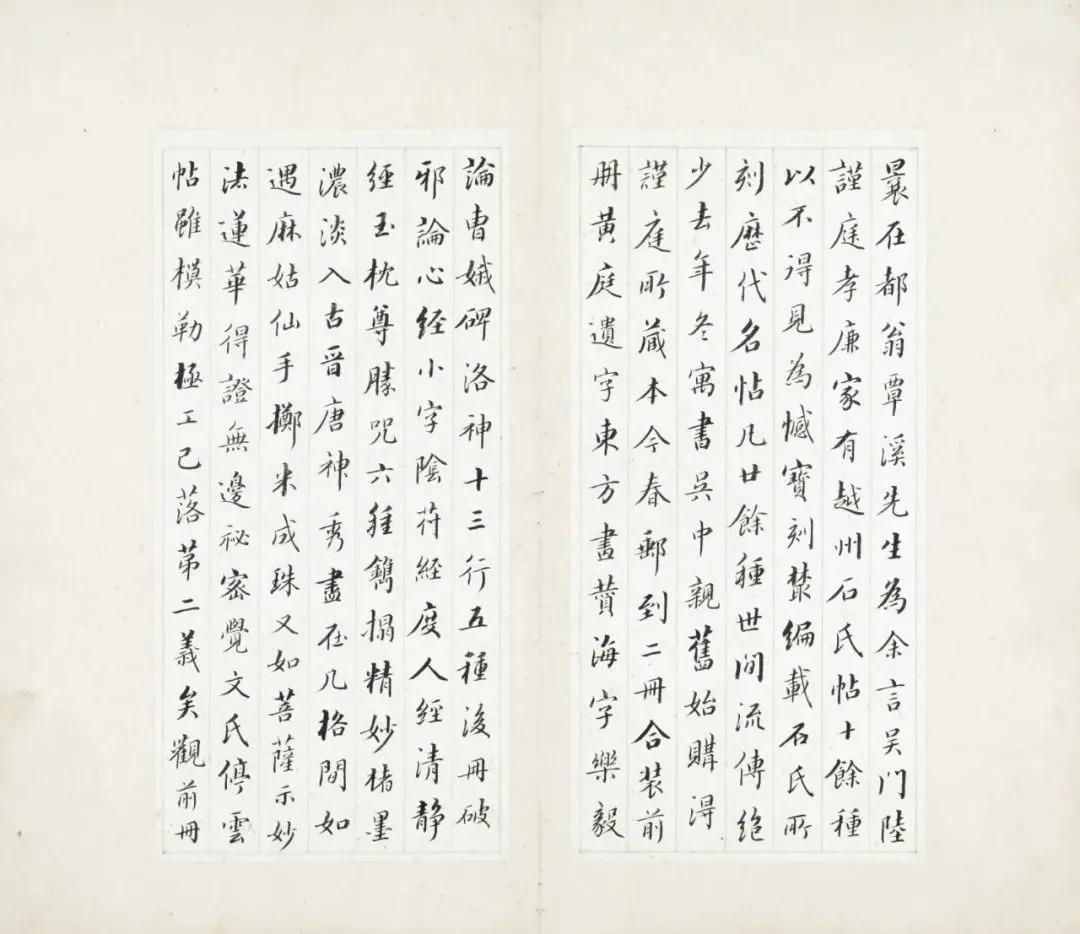 曩在都翁覃溪先生為余言吴門陸
謹庭孝廉家有越州石氏帖十餘種
以不得見為憾寶刻叢編載石氏所
刻歷代名帖凡廿餘種世間流傳絕
少去年冬寓書吳中親舊始購得
謹庭所藏本今春郵到二冊合装前
冊黄庭遺字東方畫贊海字樂毅
論曹娥碑洛神十三行五種後冊破
邪論心經小字陰符經度人經清静
經玉枕尊勝咒六種鐫搨精妙楮墨
濃淡入古晋唐神秀盡在几格間如
遇麻姑仙手擲米成珠又如菩薩示妙
法蓮華得證無邊祕密覺文氏停雲
帖雖模勒極工已落第二義矣觀前冊